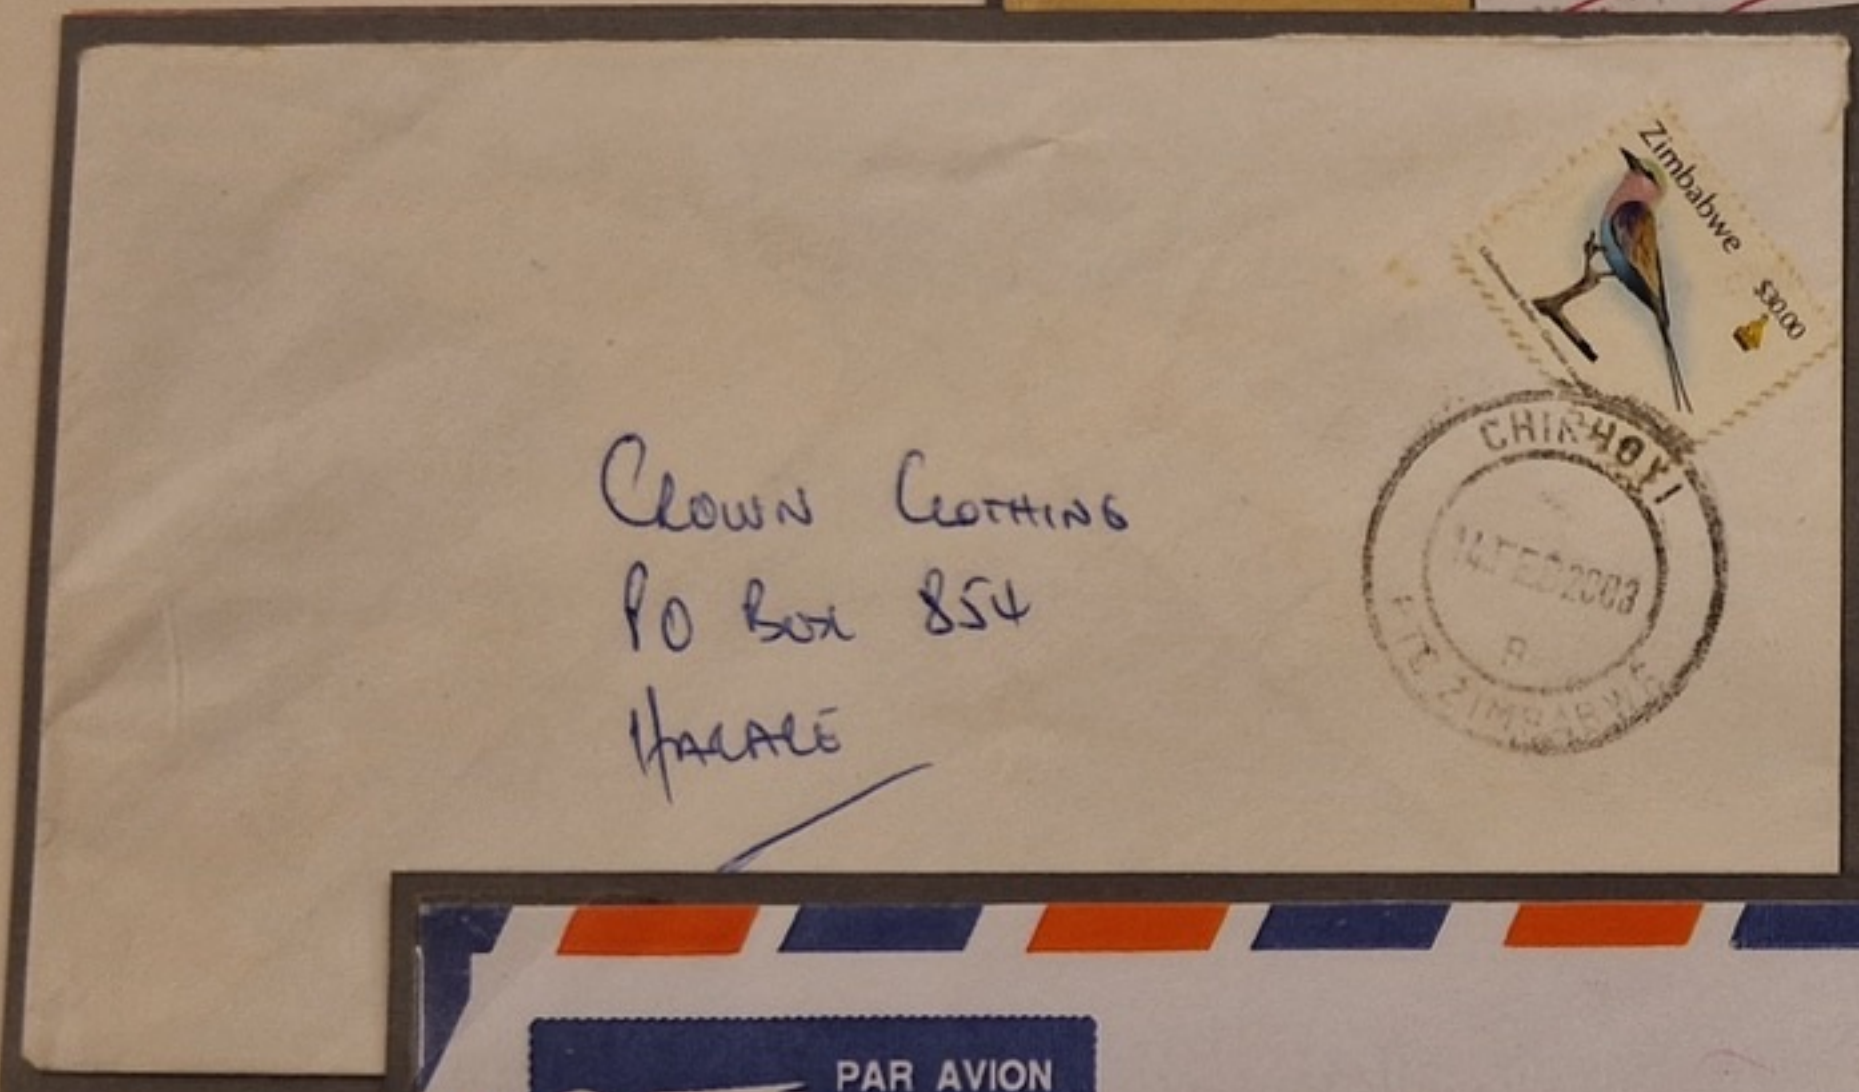 Zimbabwe
$30.00
CHINHOYI
14 FEB 2003
P.T.C. ZIMBABWE
CROWN CLOTHING
PO BOX 854
HARARE
PAR AVION